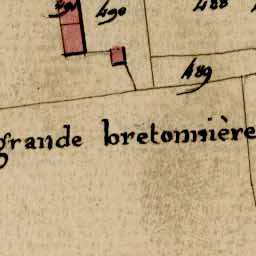 491 490 488
489
grande bretonnière